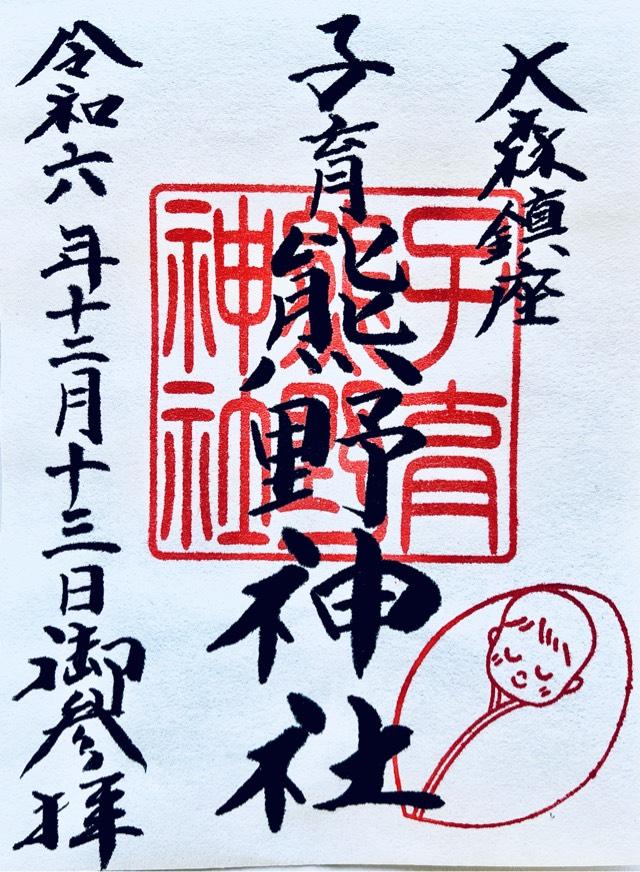 大森鎮座
子育熊野神社
子育
熊野
神社
令和六年十二月十三日御参拝